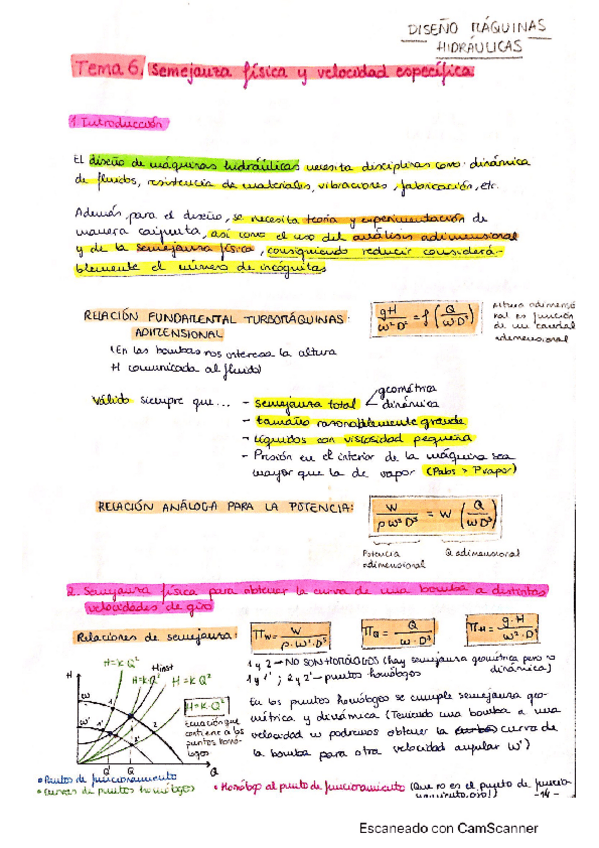 DISEÑO MÁQUINAS
HIDRÁULICAS
Tema 6. Semejanza física y velocidad específica
1. Introducción
El diseño de máquinas hidráulicas necesita disciplinas como: dinámica
de fluidos, resistencia de materiales, vibraciones, fabricación, etc.
Además, para el diseño, se necesita teoría y experimentación de
manera conjunta, así como el uso del análisis adimensional
y de la semejanza física, consiguiendo reducir considerá-
blemente el número de incógnitas
RELACIÓN FUNDAMENTAL TURBOMÁQUINAS:
ADIMENSIONAL
(En las bombas nos interesa la altura
H comunicada al fluido)
gH / ω²D² = f (Q / ωD³)
Altura adimensio
nal es función
de un caudal
adimensional
Válido siempre que... - semejanza total < geométrica
dinámica
- tamaño razonablemente grande
- Líquidos con viscosidad pequeña
- Presión en el interior de la máquina sea
mayor que la de vapor (Pabs > Pvapor)
RELACIÓN ANÁLOGA PARA LA POTENCIA:
W / ρω³D⁵ = W (Q / ωD³)
Potencia
adimensional
Q adimensional
2. Semejanza física para obtener la curva de una bomba a distintas
velocidades de giro
Relaciones de semejanza:
Πw = W / ρ·ω³·D⁵
ΠQ = Q / ω·D³
ΠH = g·H / ω²·D²
1 y 2 → NO SON HOMÓLOGOS (hay semejanza geométrica pero no
dinámica)
1 y 1' ; 2 y 2' → puntos homólogos
H
H=k·Q²
H=k·Q²
Hinst
H=k·Q²
H=k·Q²
ecuación que
contiene a los
puntos homó-
logos
ω
ω'
1
1'
2
2'
Q'
Q
Q
En los puntos homólogos se cumple semejanza geo-
métrica y dinámica (Teniendo una bomba a una
velocidad ω podremos obtener la curva de
la bomba para otra velocidad angular ω')
• Puntos de funcionamiento
• Curvas de puntos homólogos
• Homólogo al punto de funcionamiento (Que no es el punto de funcio
namiento, ojo!)
Escaneado con CamScanner